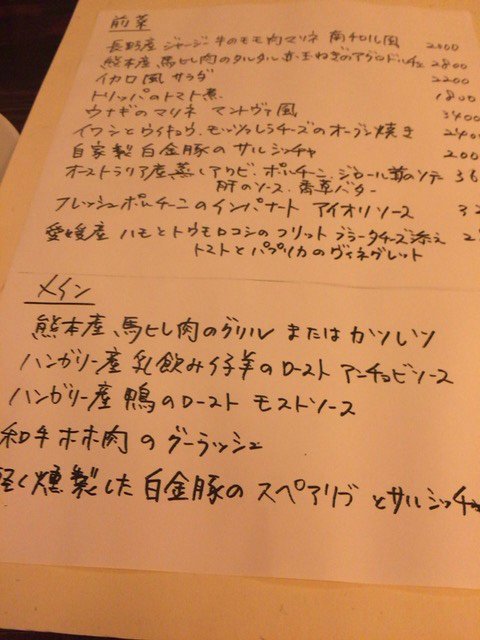 前菜
長野産 ジャージー牛のモモ肉マリネ 南チロル風 2800
熊本産 馬ヒレ肉のタルタル 赤玉ねぎのアグロドルチェ 2800
イカロ風 サラダ 2200
トリッパのトマト煮 1800
ウナギのマリネ マントヴァ風 3400
イワシとウイキョウ、モッツァレラチーズのオーブン焼き 2400
自家製 白金豚の サルシッチャ 200
オーストラリア産蒸しアワビ、ポルチーニ、ジロール茸のソテー 36
肝のソース、香草バター
フレッシュポルチーニのインパナート アイオリソース 32
愛媛産 ハモとトウモロコシのフリット ブラータチーズ添え 2
トマトとパプリカのヴィネグレット
メイン
熊本産 馬ヒレ肉のグリル または カツレツ
ハンガリー産 乳飲み仔羊のロースト アンチョビソース
ハンガリー産 鴨のロースト モストソース
和牛ホホ肉 の グーラッシュ
軽く燻製した 白金豚の スペアリブ とサルシッチャ